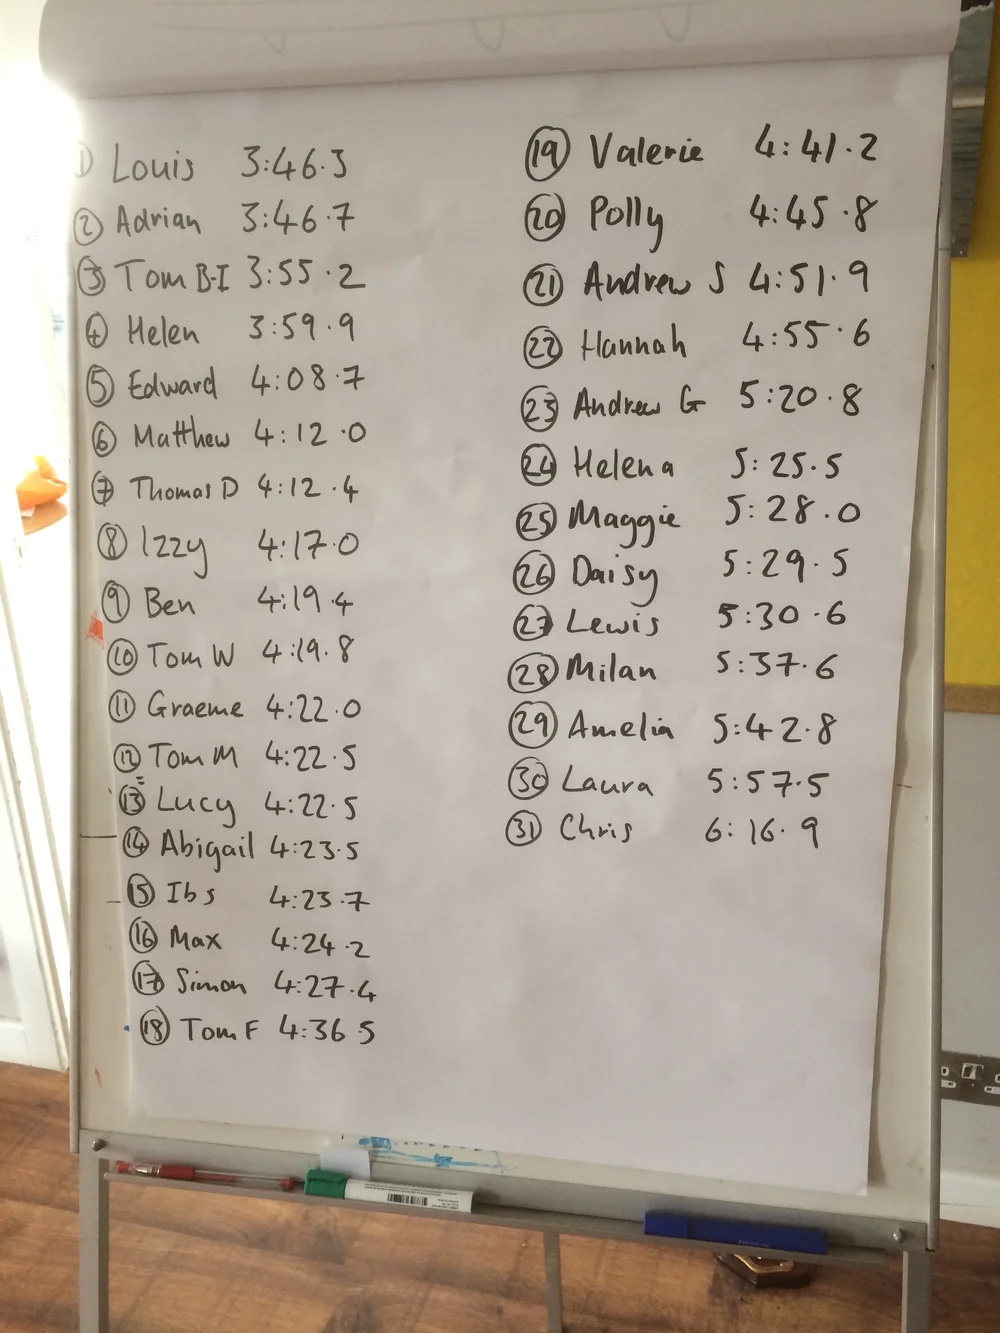 1 Louis 3:46.3
2 Adrian 3:46.7
3 Tom B-I 3:55.2
4 Helen 3:59.9
5 Edward 4:08.7
6 Matthew 4:12.0
7 Thomas D 4:12.4
8 Izzy 4:17.0
9 Ben 4:19.4
10 Tom W 4:19.8
11 Graeme 4:22.0
12 Tom M 4:22.5
13= Lucy 4:22.5
14 Abigail 4:23.5
15 Ibs 4:23.7
16 Max 4:24.2
17 Simon 4:27.4
18 Tom F 4:36.5
19 Valerie 4:41.2
20 Polly 4:45.8
21 Andrew S 4:51.9
22 Hannah 4:55.6
23 Andrew G 5:20.8
24 Helena 5:25.5
25 Maggie 5:28.0
26 Daisy 5:29.5
27 Lewis 5:30.6
28 Milan 5:37.6
29 Amelia 5:42.8
30 Laura 5:57.5
31 Chris 6:16.9